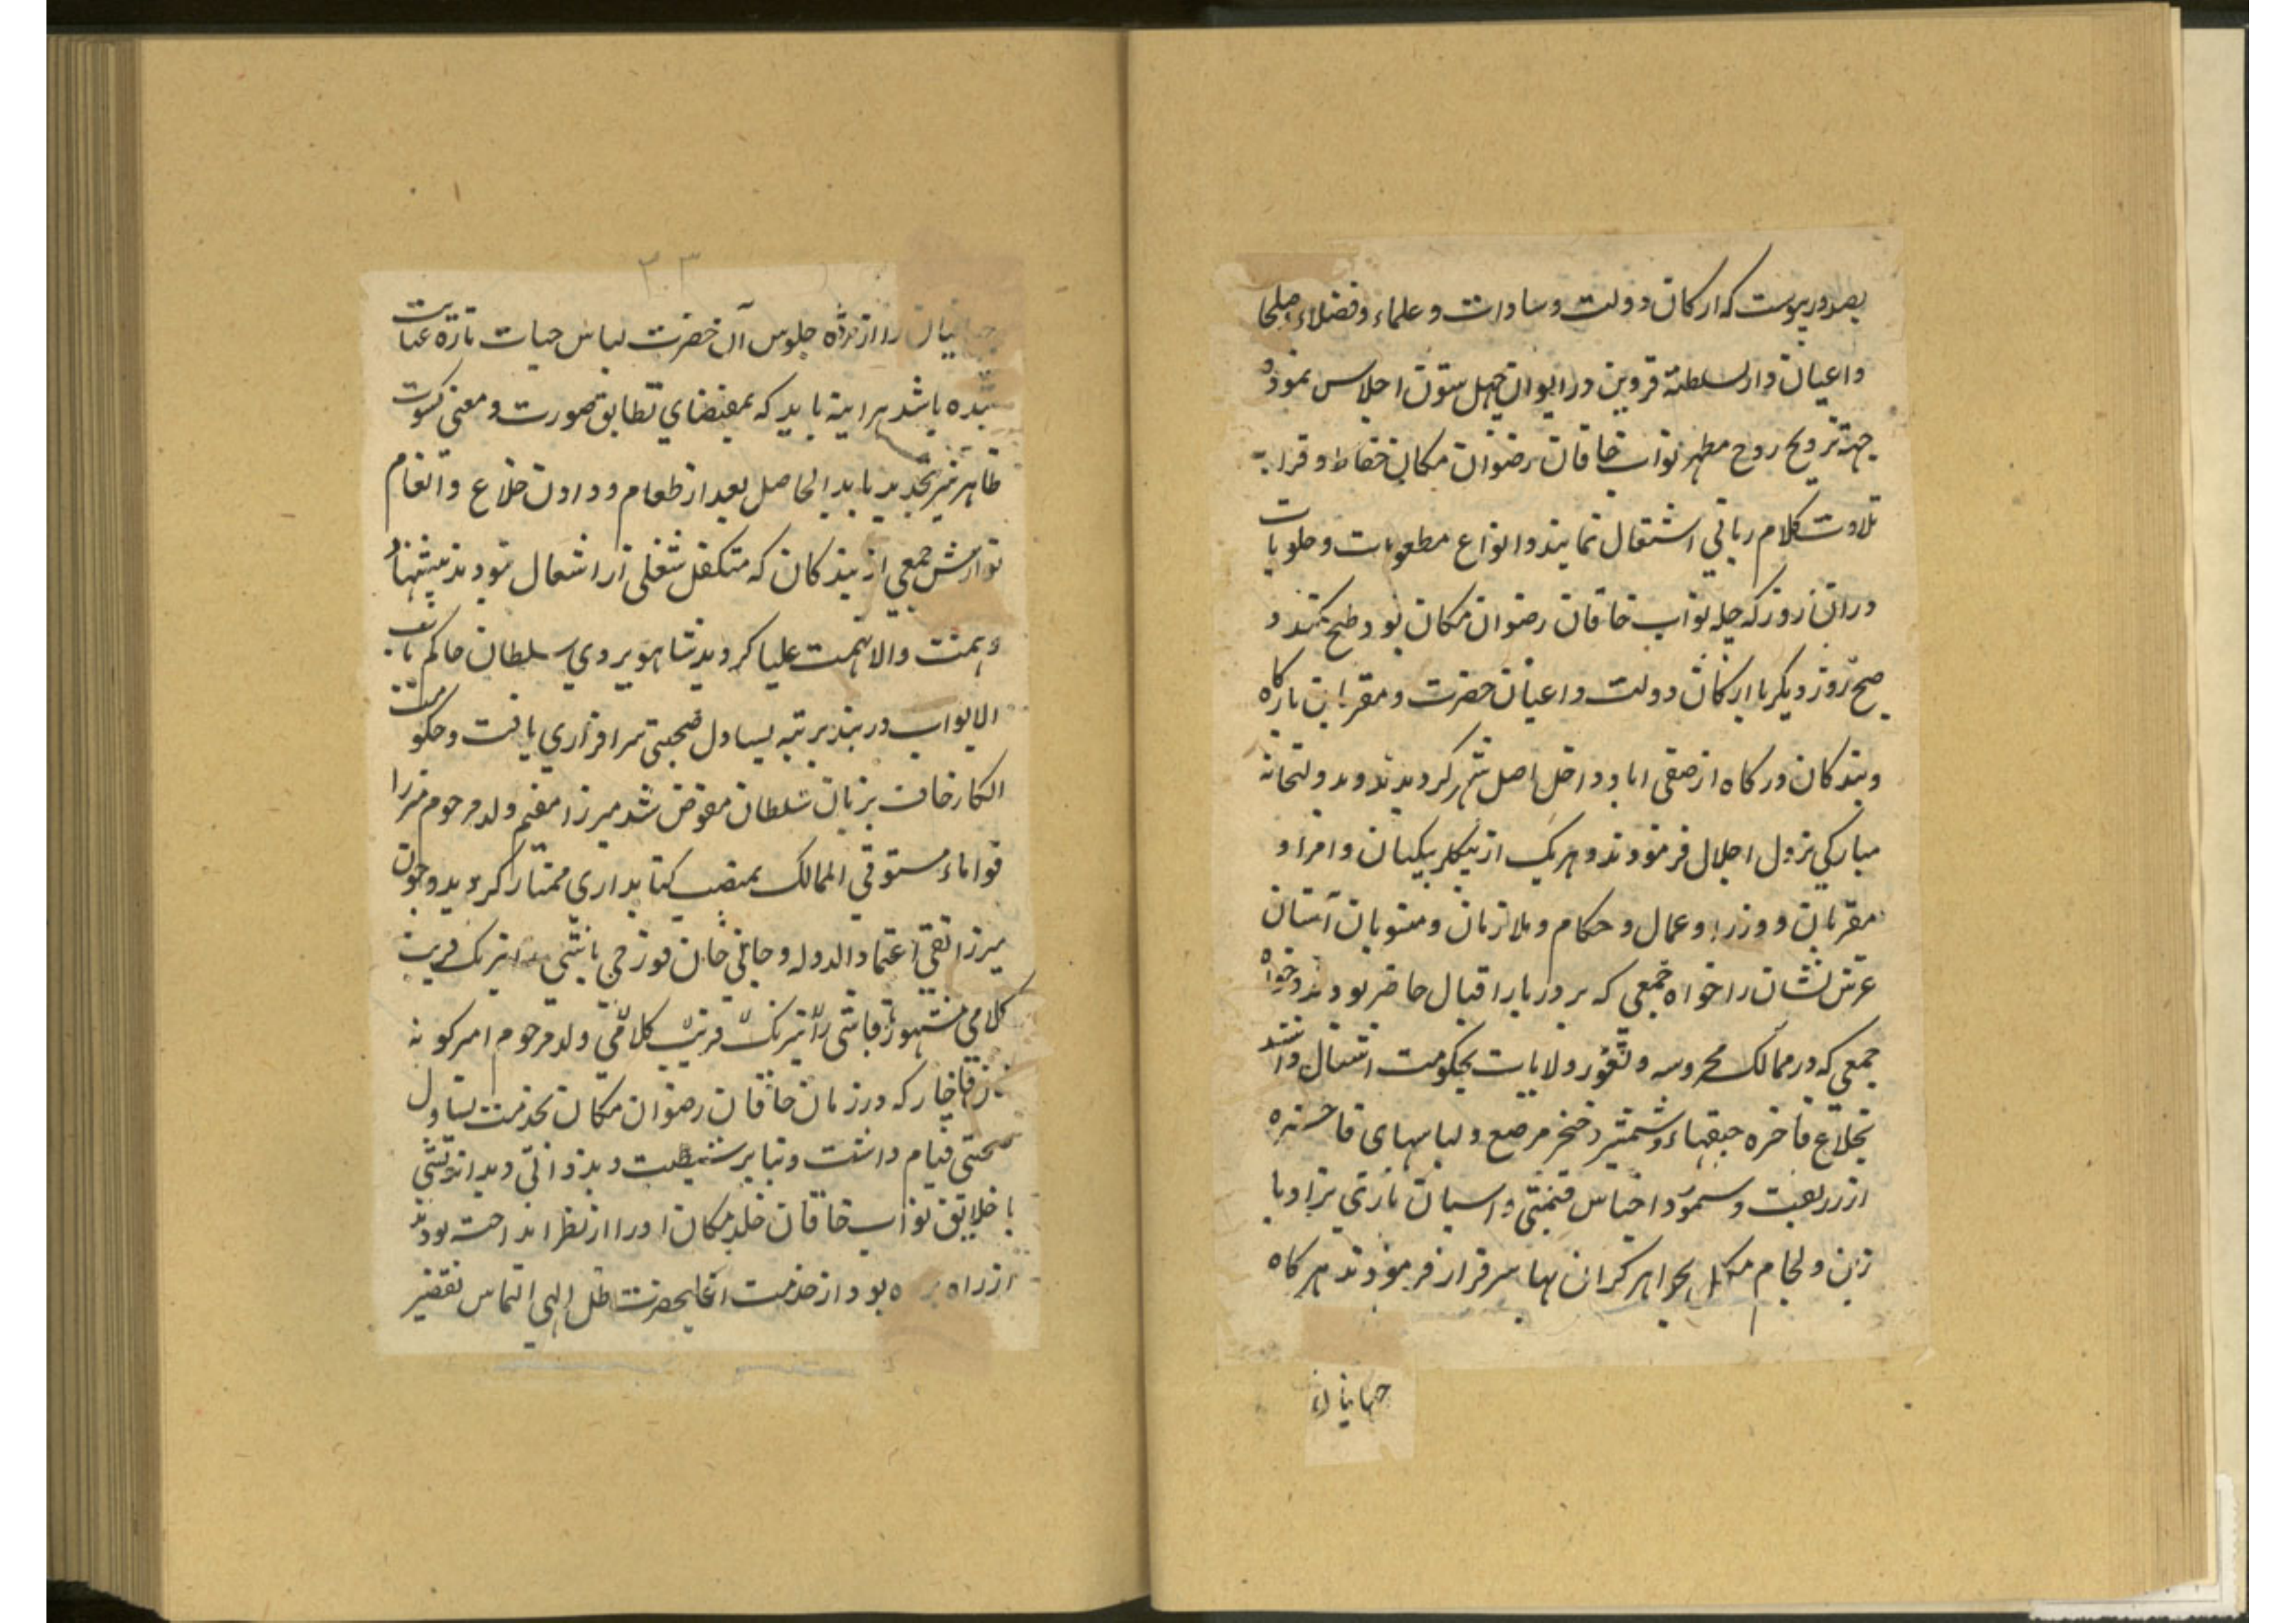 بصدور پیوست که ارکان دولت و سادات و علماء و فضلاء و صلحا
و اعیان دار السلطنة قزوین در ایوان چهل ستون اجلاس نموده
جهة ترویح روح مطهر نواب خاقان رضوان مکان حفاظ و قراء بـ
تلاوت کلام ربانی اشتغال نمایند و انواع مطعومات و حلویات
در آن روز که چله نواب خاقان رضوان مکان بود طبخ کنند و
صبح روز دیگر با ارکان دولت و اعیان حضرت و مقربان بارکاه
و بندکان درکاه از صفی اباد داخل اصل شهر کردیدند و بدولتخانه
مبارکی نزول اجلال فرمودند و هریک از بیکلربیکیان و امراء و
مقربان و وزراء و عمال و حکام و ملازمان و منسوبان آستان
عرش نشان را خواه جمعی که بر دربار اقبال حاضر بودند و خواه
جمعی که در ممالک محروسه و ثغور ولایات بحکومت اشتغال داشتند
بخلاع فاخره جیقهاء و شمشیر و خنجر مرصع و لباسهای فاخره
از زربفت و سمور و اجناس قیمتی و اسبان تازی نژاد با
زین و لجام مکلل بجواهر کران بها سرفراز فرمودند هرکاه
جهانیان
۲۰۳
جهانیان را از مژده جلوس آن حضرت لباس حیات تازه عنایت
شده باشد هراینه باید که بمقتضای تطابق صورت و معنی کسوت
ظاهر نیز تجدید یابد الحاصل بعد از طعام و دادن خلاع و انعام
نوازش جمعی از بندکان که متکفل شغلی از اشغال نبودند پیشنهاد
وهمت والانهمت علیا کردید شاهویردی سلطان حاکم باب
الابواب دربند برتبه یساول صحبتی سرافرازی یافت و حکومت
الکا رخان بزبان سلطان مفوض شد میرزا مقیم ولد مرحوم میرزا
قواماء مستوفی الممالک بمنصب کتابداری ممتاز کردید و چون
میرزا تقی اعتماد الدوله و جانی خان قورچی باشی
کلامی مشهور قاجار که در زمان خاقان رضوان مکان بخدمت یساول
صحبتی قیام داشت و بنابر
با خلایق نواب خاقان خلد مکان او را از نظر انداخته بودند
از راه بود از خدمت اعلیحضرت ظل الهی التماس تقصیر